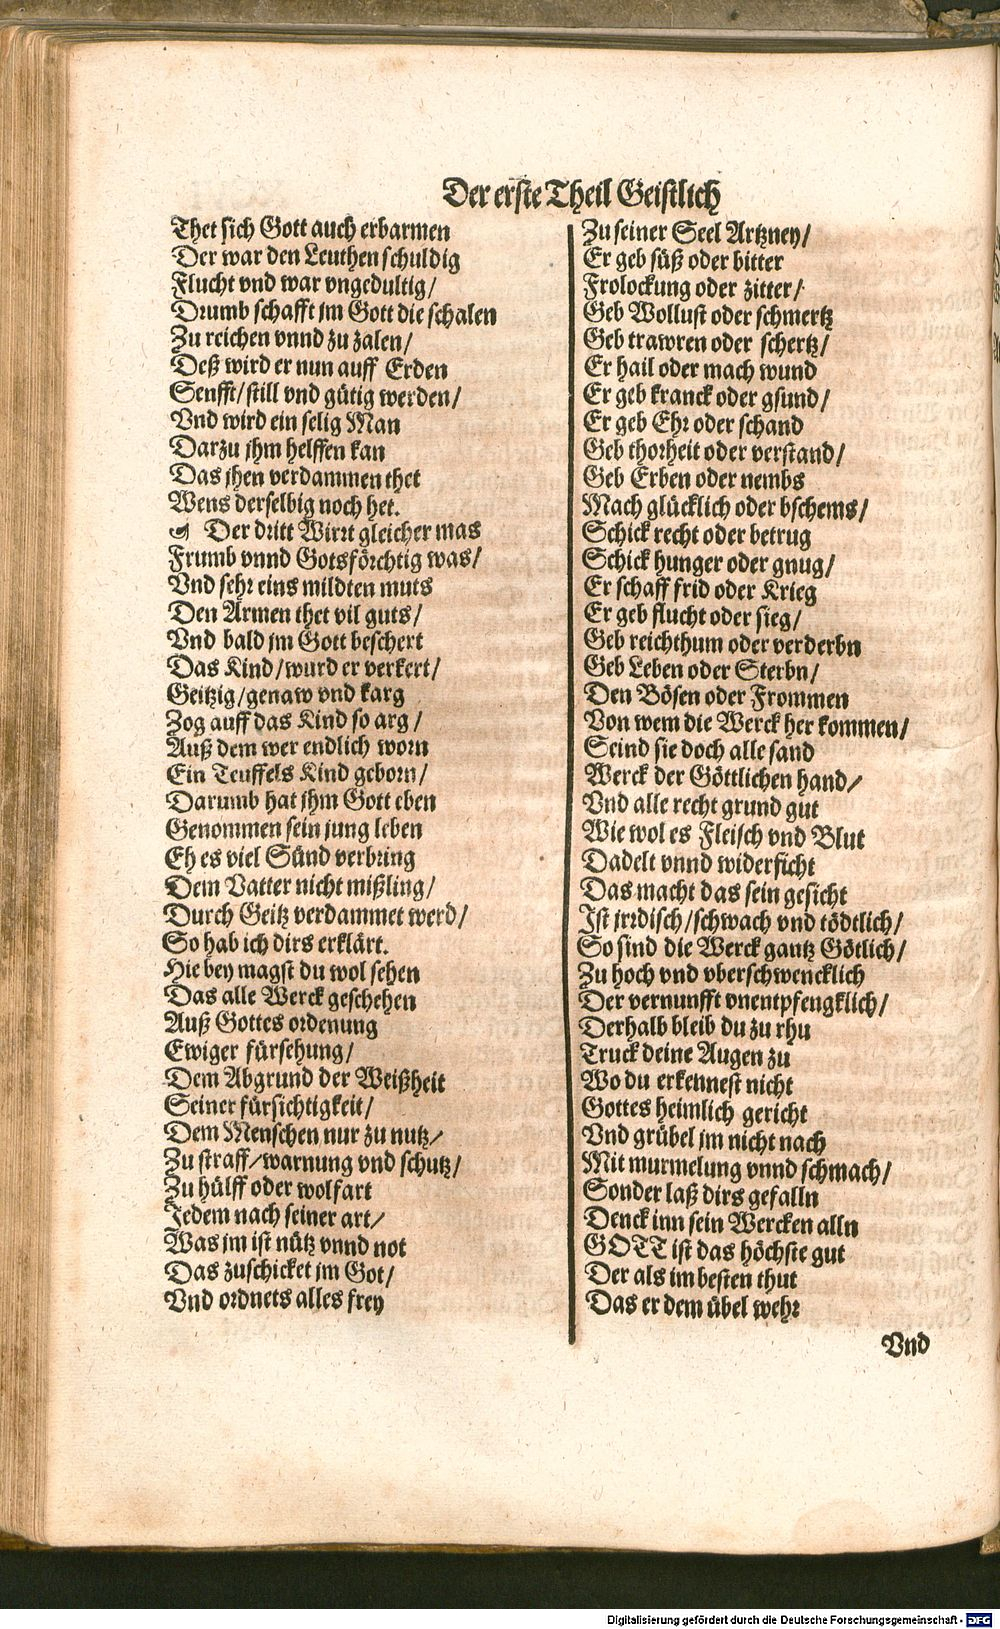 Der erste Theil Geistlich
Thet sich Gott auch erbarmen
Der war den Leuthen schuldig
Flucht vnd war vngedultig/
Drumb schafft jm Gott die schalen
Zu reichen vnnd zu zalen/
Deß wird er nun auff Erden
Senfft/still vnd gütig werden/
Vnd wird ein selig Man
Darzu jhm helffen kan
Das jhen verdammen thet
Wens derselbig noch het.
☙ Der dritt Wirt gleicher mas
Frumb vnnd Gotsförchtig was/
Vnd sehr eins mildten muts
Den Armen thet vil guts/
Vnd bald jm Gott beschert
Das Kind/wurd er verkert/
Geitzig/genaw vnd karg
Zog auff das Kind so arg/
Auß dem wer endlich worn
Ein Teuffels Kind geborn/
Darumb hat jhm Gott eben
Genommen sein jung leben
Eh es viel Sünd verbring
Dem Vatter nicht mißling/
Durch Geitz verdammet werd/
So hab ich dirs erklärt.
Hie bey magst du wol sehen
Das alle Werck geschehen
Auß Gottes ordenung
Ewiger fürsehung/
Dem Abgrund der Weißheit
Seiner fürsichtigkeit/
Dem Menschen nur zu nutz/
Zu straff/warnung vnd schutz/
Zu hülff oder wolfart
Jedem nach seiner art/
Was jm ist nütz vnnd not
Das zuschicket jm Got/
Vnd ordnets alles frey
Zu seiner Seel Artzney/
Er geb süß oder bitter
Frolockung oder zitter/
Geb Wollust oder schmertz
Geb trawren oder schertz/
Er hail oder mach wund
Er geb kranck oder gsund/
Er geb Ehr oder schand
Geb thorheit oder verstand/
Geb Erben oder nembs
Mach glücklich oder bschems/
Schick recht oder betrug
Schick hunger oder gnug/
Er schaff frid oder Krieg
Er geb flucht oder sieg/
Geb reichthum oder verderbn
Geb Leben oder Sterbn/
Den Bösen oder Frommen
Von wem die Werck her kommen/
Seind sie doch alle sand
Werck der Göttlichen hand/
Vnd alle recht grund gut
Wie wol es Fleisch vnd Blut
Dadelt vnnd widerficht
Das macht das sein gesicht
Ist jrrdisch/schwach vnd tödtlich/
So sind die Werck gantz Götlich/
Zu hoch vnd vberschwencklich
Der vernunfft vnentpfengklich/
Derhalb bleib du zu rhu
Truck deine Augen zu
Wo du erkennest nicht
Gottes heimlich gericht
Vnd grübel jm nicht nach
Mit murmelung vnnd schmach/
Sonder laß dirs gefalln
Denck inn sein Wercken alln
GOTT ist das höchste gut
Der als im besten thut
Das er dem übel wehr
Vnd
Digitalisierung gefördert durch die Deutsche Forschungsgemeinschaft - DFG